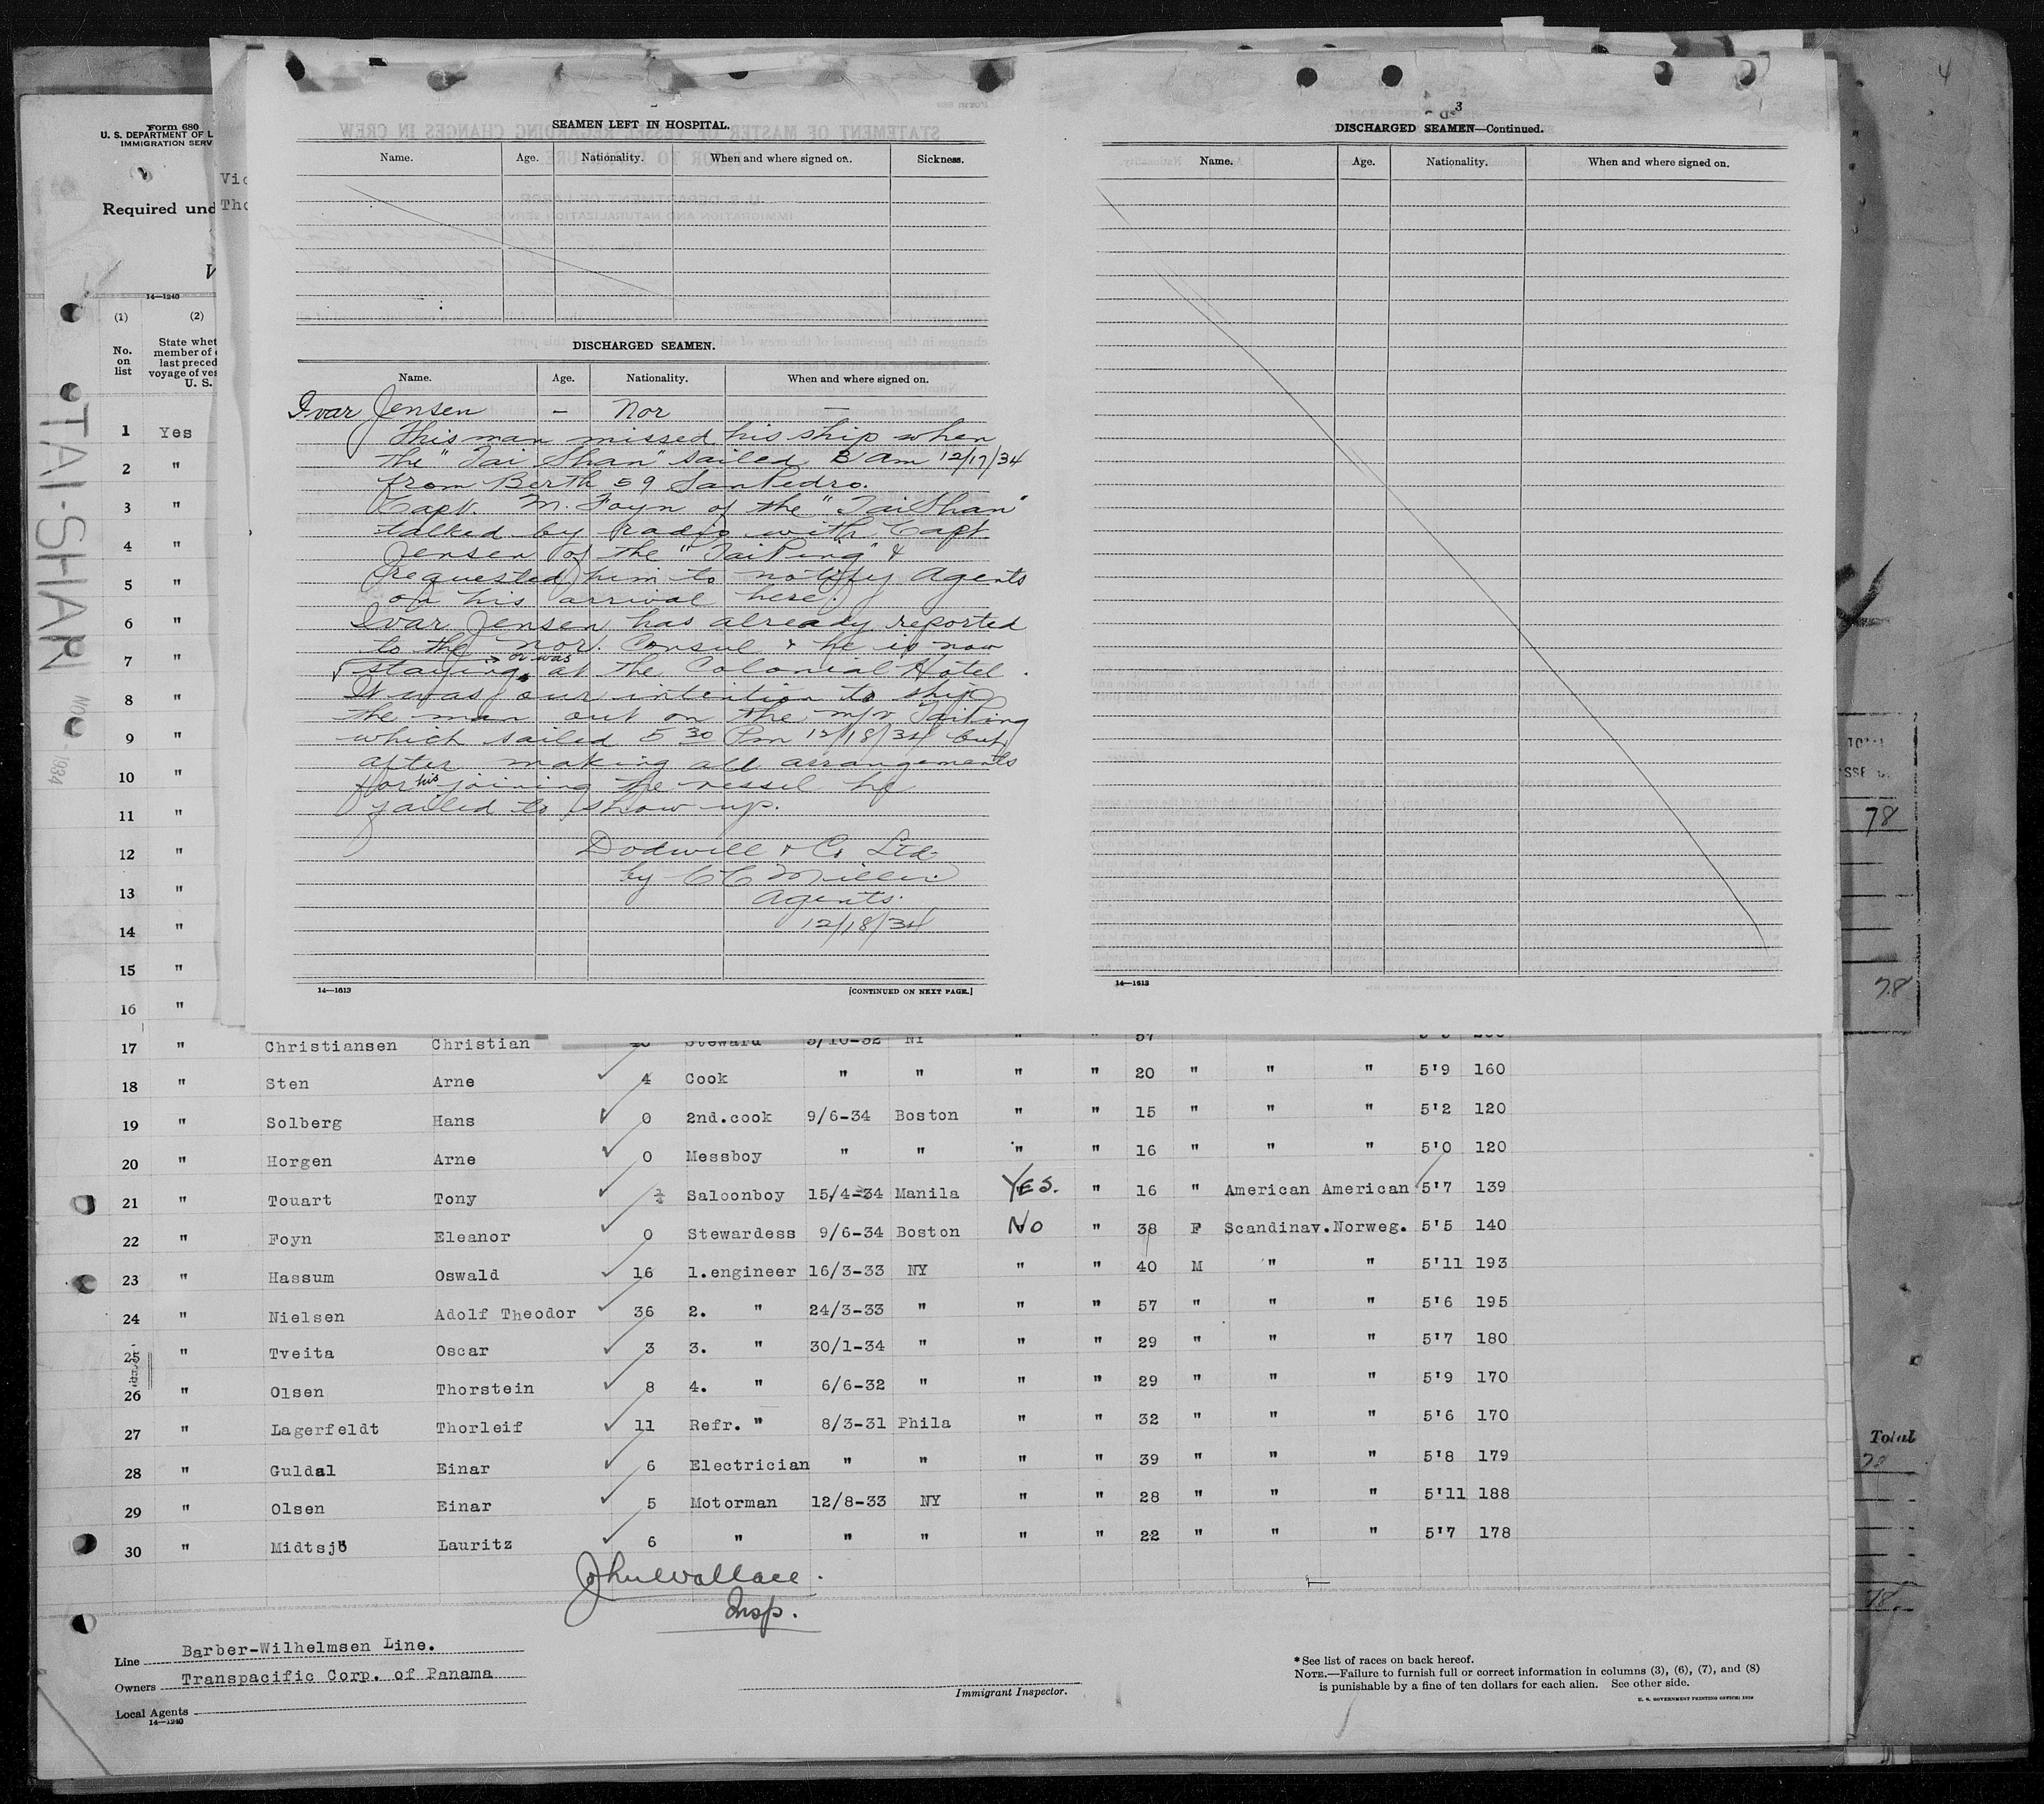 4
Form 680
U. S. DEPARTMENT OF L
IMMIGRATION SERV
2
Vic
Required und
Tho
V
14—1240
(1) (2)
No. on list
State whet
member of
last preced
voyage of ves
U. S.
TAI-SHAN
1934
SEAMEN LEFT IN HOSPITAL.
Name. Age. Nationality. When and where signed on. Sickness.
DISCHARGED SEAMEN.
Name. Age. Nationality. When and where signed on.
Ivar Jensen — Nor —
This man missed his ship when
the "Tai Shan" sailed 3 am 12/17/34
from Berth 59 San Pedro.
Capt. M. Foyn of the "Tai Shan"
talked by radio with Capt
Jensen of the "Tai Ping" &
requested him to notify Agents
on his arrival here.
Ivar Jensen has already reported
to the Nor. Consul & he is now
or was
staying at the Colonial Hotel.
It was our intention to ship
the man out on the m/v Taiping
which sailed 5 30 Pm 12/18/34 but
after making all arrangements
for his joining the vessel he
failed to show up.
Dodwell & Co Ltd
by CC Miller
Agents.
12/18/34
14—1613 [CONTINUED ON NEXT PAGE.]
3
DISCHARGED SEAMEN—Continued.
Name. Age. Nationality. When and where signed on.
14—1613
78
78
Total
78
78
1 Yes
2 "
3 "
4 "
5 "
6 "
7 "
8 "
9 "
10 "
11 "
12 "
13 "
14 "
15 "
16 "
17 " Christiansen Christian Steward 3/10-32 NY " " 57
18 " Sten Arne 4 Cook " " " " 20 " " " 5'9 160
19 " Solberg Hans 0 2nd.cook 9/6-34 Boston " " 15 " " " 5'2 120
20 " Horgen Arne 0 Messboy " " " " 16 " " " 5'0 120
21 " Touart Tony Saloonboy 15/4-34 Manila YES. " 16 " American American 5'7 139
22 " Foyn Eleanor 0 Stewardess 9/6-34 Boston No " 38 F Scandinav. Norweg. 5'5 140
23 " Hassum Oswald 16 1.engineer 16/3-33 NY " " 40 M " " 5'11 193
24 " Nielsen Adolf Theodor 36 2. " 24/3-33 " " " 57 " " " 5'6 195
25 " Tveita Oscar 3 3. " 30/1-34 " " " 29 " " " 5'7 180
26 " Olsen Thorstein 8 4. " 6/6-32 " " " 29 " " " 5'9 170
27 " Lagerfeldt Thorleif 11 Refr. " 8/3-31 Phila " " 32 " " " 5'6 170
28 " Guldal Einar 6 Electrician " " " " 39 " " " 5'8 179
29 " Olsen Einar 5 Motorman 12/8-33 NY " " 28 " " " 5'11 188
30 " Midtsjö Lauritz 6 " " " " " 22 " " " 5'7 178
John Wallace.
Insp.
Line Barber-Wilhelmsen Line.
Owners Transpacific Corp. of Panama
Local Agents
14—1240
Immigrant Inspector.
* See list of races on back hereof.
NOTE.—Failure to furnish full or correct information in columns (3), (6), (7), and (8)
is punishable by a fine of ten dollars for each alien. See other side.
U. S. GOVERNMENT PRINTING OFFICE: 1929